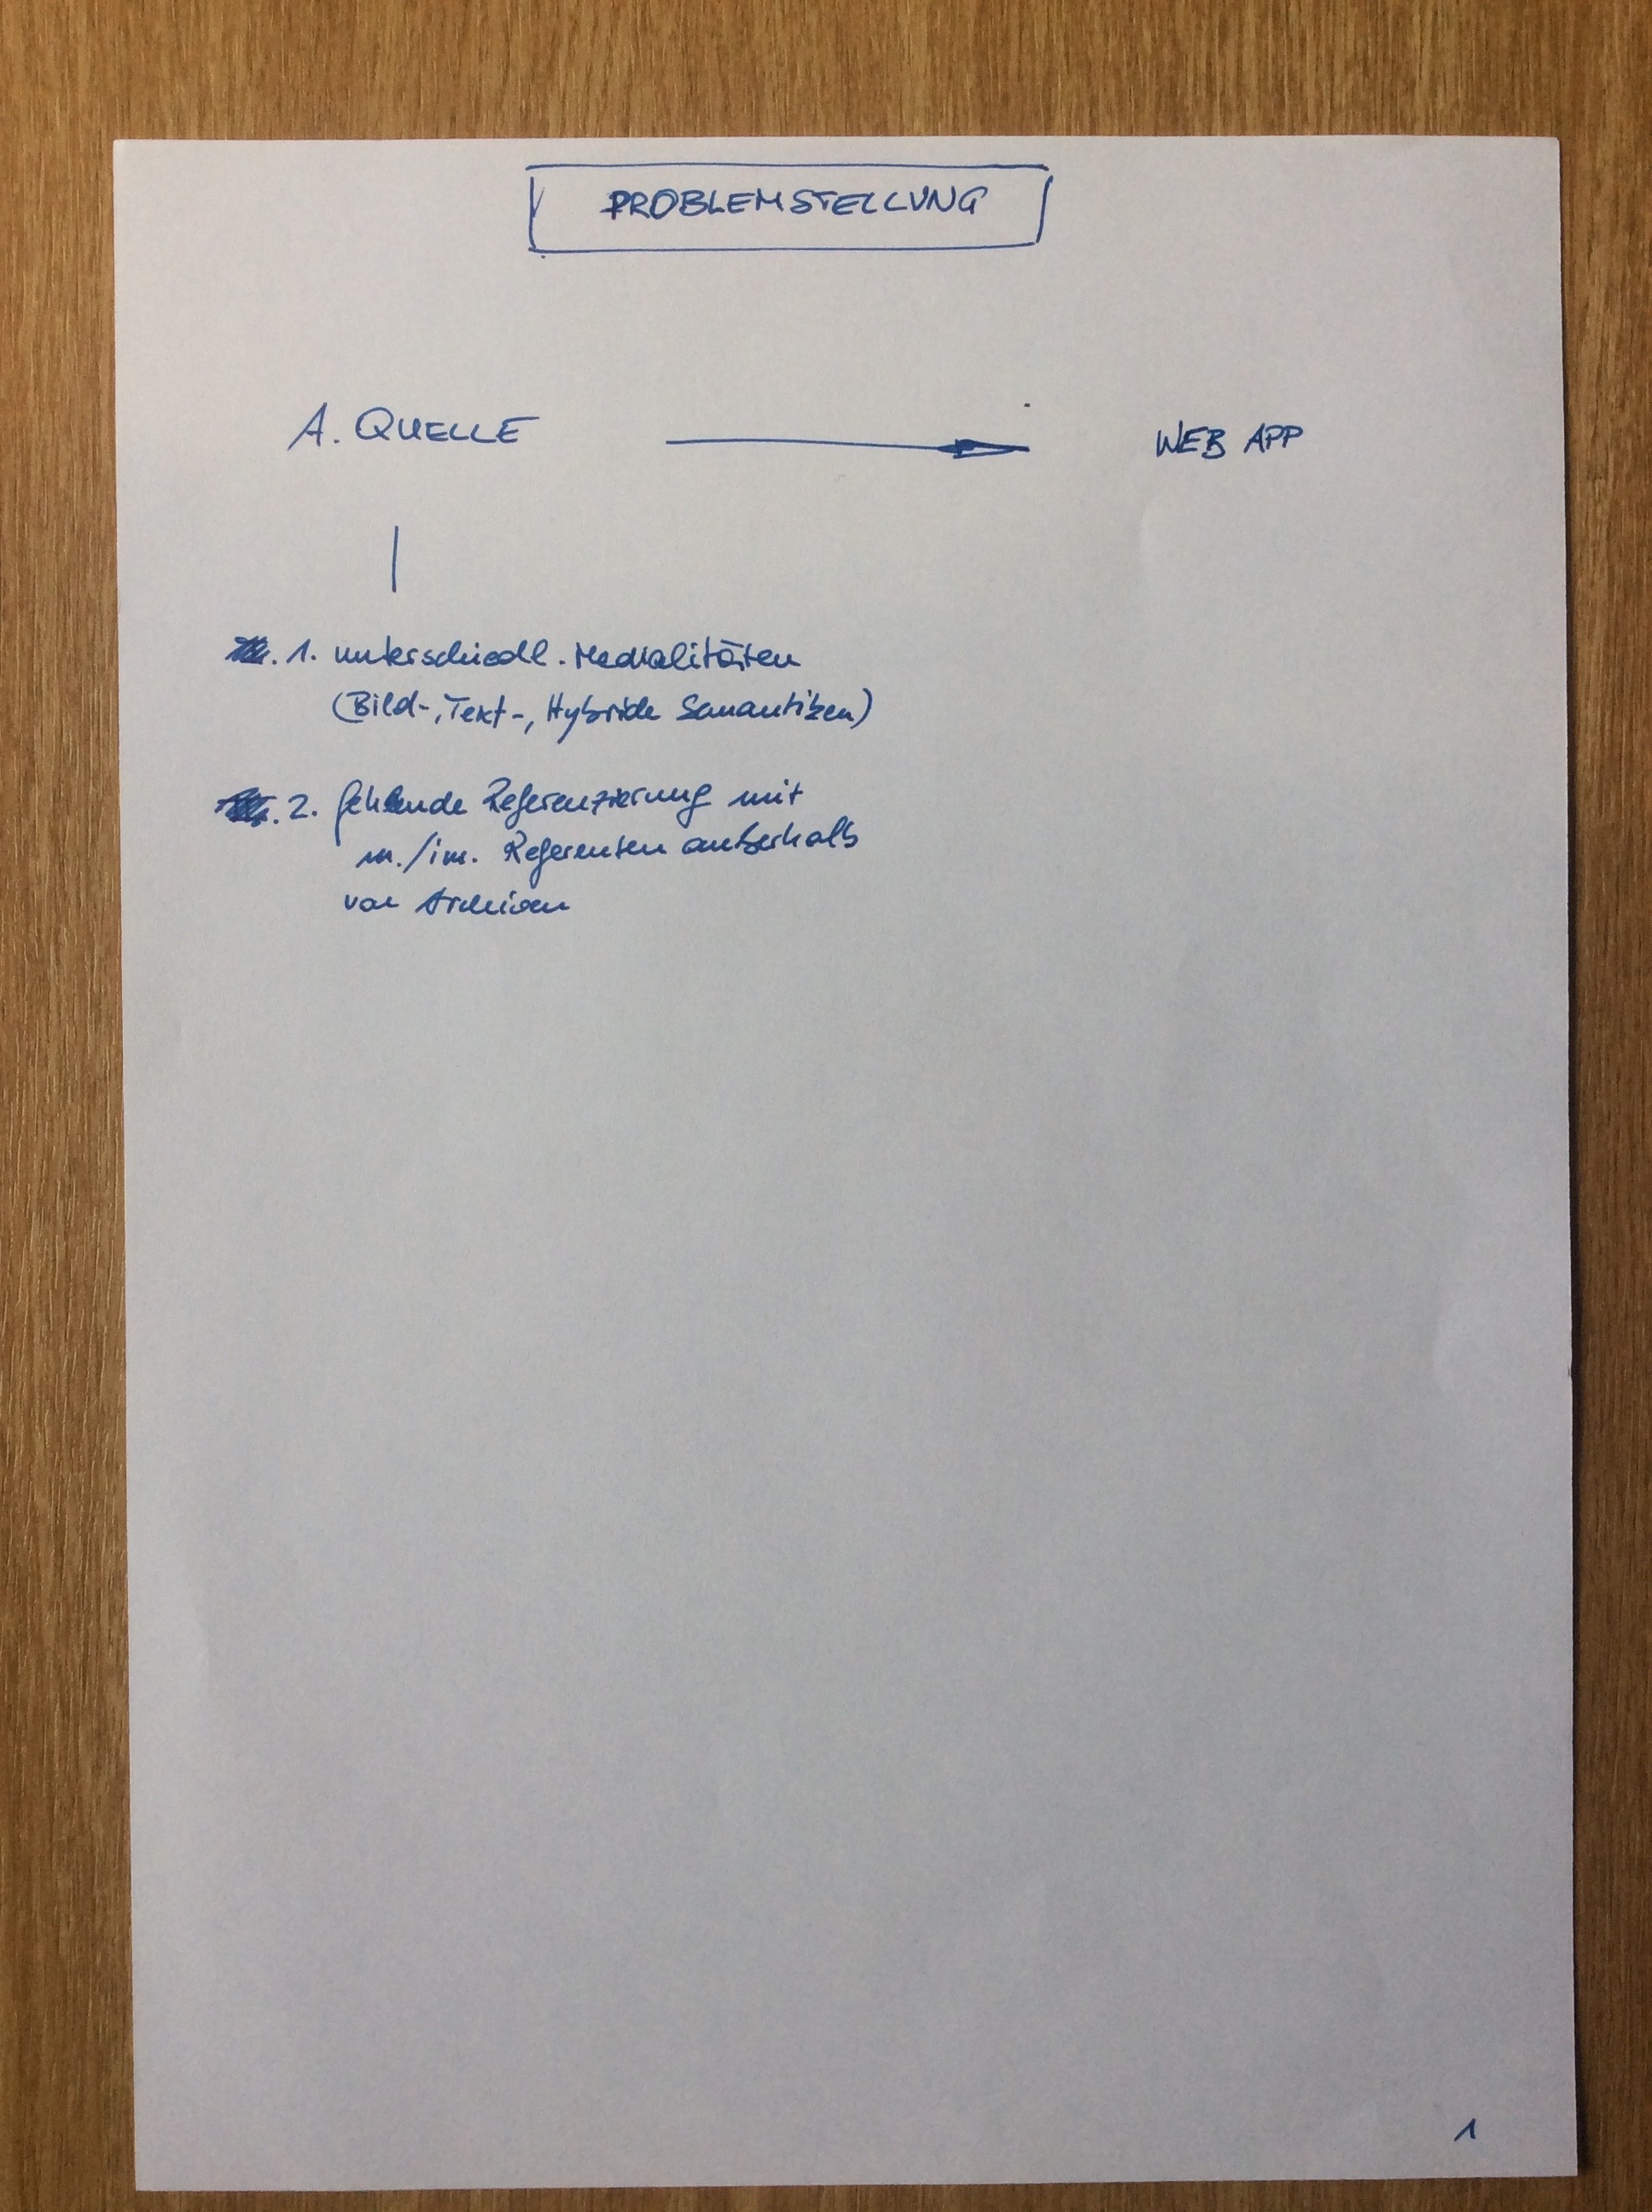 PROBLEMSTELLUNG
A. QUELLE WEB APP
1. unterschiedl. Medialitäten
(Bild-, Text-, Hybride Semantiken)
2. fehlende Referenzierung mit
m./im. Referenten außerhalb
von Archiven
1